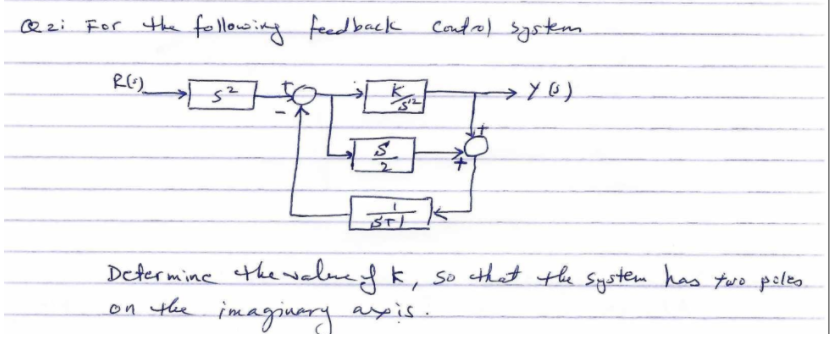 Q2: For the following feedback control system
R(s) S² + K/S² → Y(s)
-
+
S/2 +
1/S+1
Determine the value of K, so that the system has two poles
on the imaginary axis.